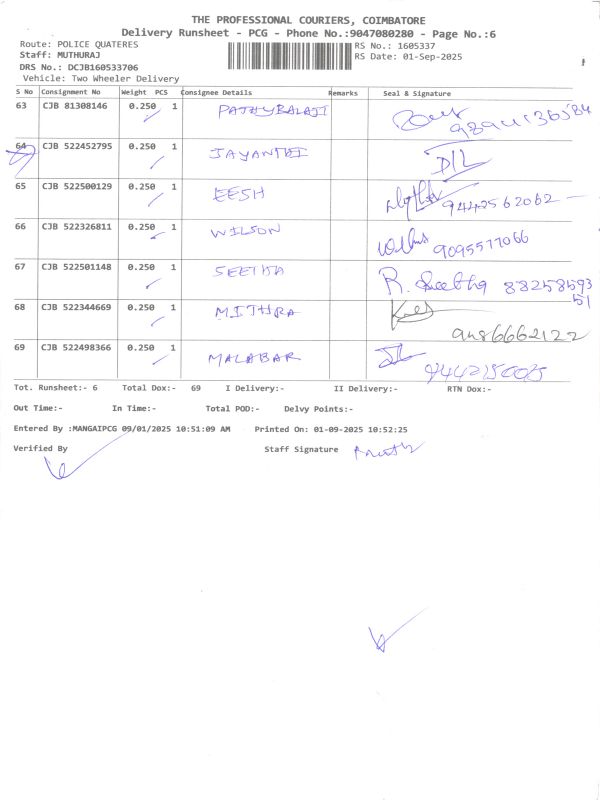 THE PROFESSIONAL COURIERS, COIMBATORE
Delivery Runsheet - PCG - Phone No.:9047080280 - Page No.:6
Route: POLICE QUATERES RS No.: 1605337
Staff: MUTHURAJ RS Date: 01-Sep-2025
DRS No.: DCJB160533706
Vehicle: Two Wheeler Delivery
S No Consignment No Weight PCS Consignee Details Remarks Seal & Signature
63 CJB 81308146 0.250 1 PATHYBALAJI
64 CJB 522452795 0.250 1 JAYANTHI
65 CJB 522500129 0.250 1 EESH 9442562062
66 CJB 522326811 0.250 1 WILSON 9095577066
67 CJB 522501148 0.250 1 SEETHA R. Seetha 88258593
51
68 CJB 522344669 0.250 1 MITHRA
69 CJB 522498366 0.250 1 MALABAR
Tot. Runsheet:- 6 Total Dox:- 69 I Delivery:- II Delivery:- RTN Dox:-
Out Time:- In Time:- Total POD:- Delvy Points:-
Entered By :MANGAIPCG 09/01/2025 10:51:09 AM Printed On: 01-09-2025 10:52:25
Verified By Staff Signature